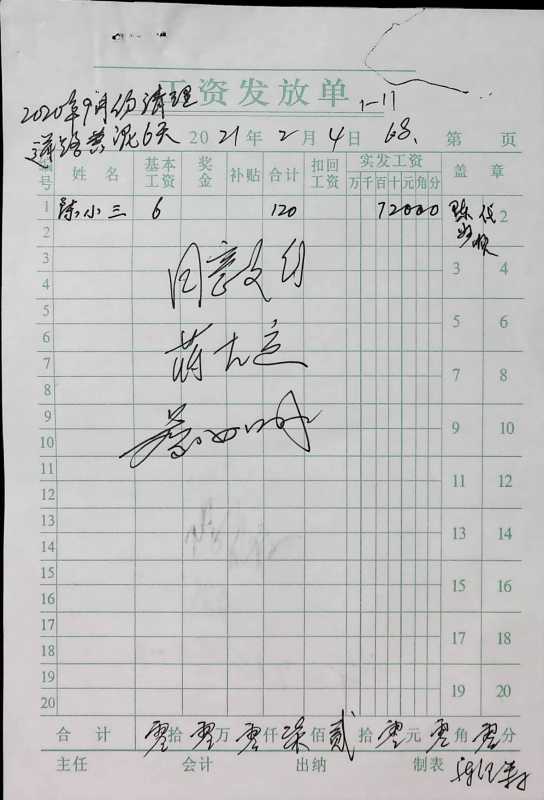 工资发放单
1-11
2020年9月份清理
道路黄泥6天 2021年2月4日 68. 第 页
编号 姓名 基本工资 奖金 补贴 合计 扣回工资 实发工资 万千百十元角分 盖章
1 陈小三 6 120 72000 2
2
3 3 4
4
5 同意支付 5 6
6
7 7 8
8
9 9 10
10
11 11 12
12
13 13 14
14
15 15 16
16
17 17 18
18
19 19 20
20
合计 零拾零万零仟柒佰贰拾零元零角零分
主任 会计 出纳 制表